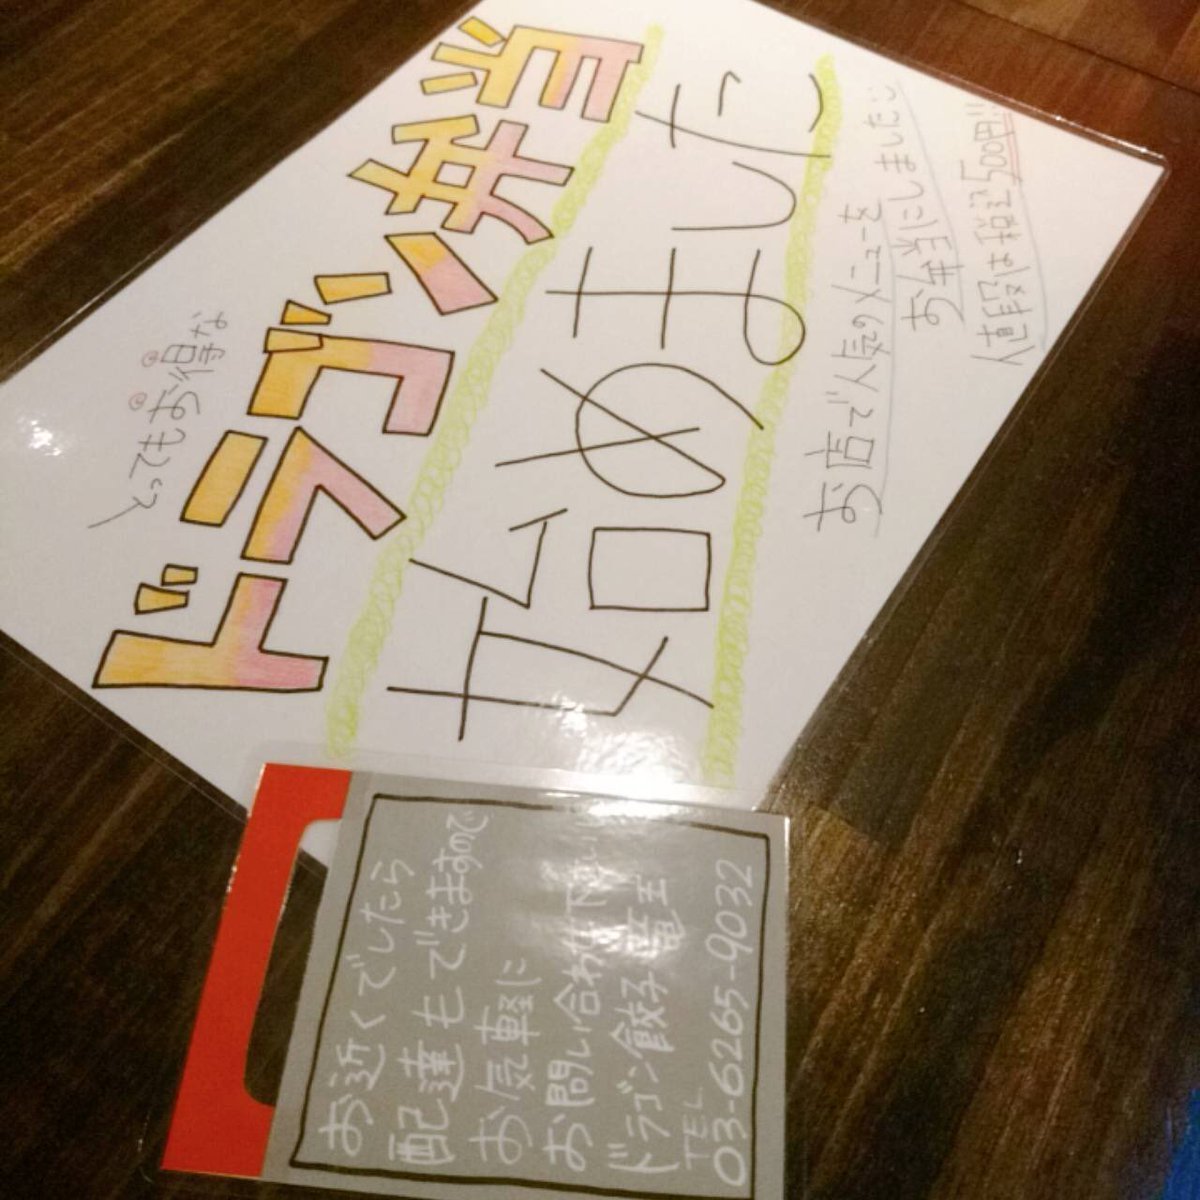 とってもお得な
ドラゴン弁当
始めました
お店で人気のメニューを
お弁当にしました
値段は税込500円!!
お近くでしたら
配達もできますので
お気軽に
お問い合わせ下さい
ドラゴン餃子 竜王
TEL
03-6265-9032